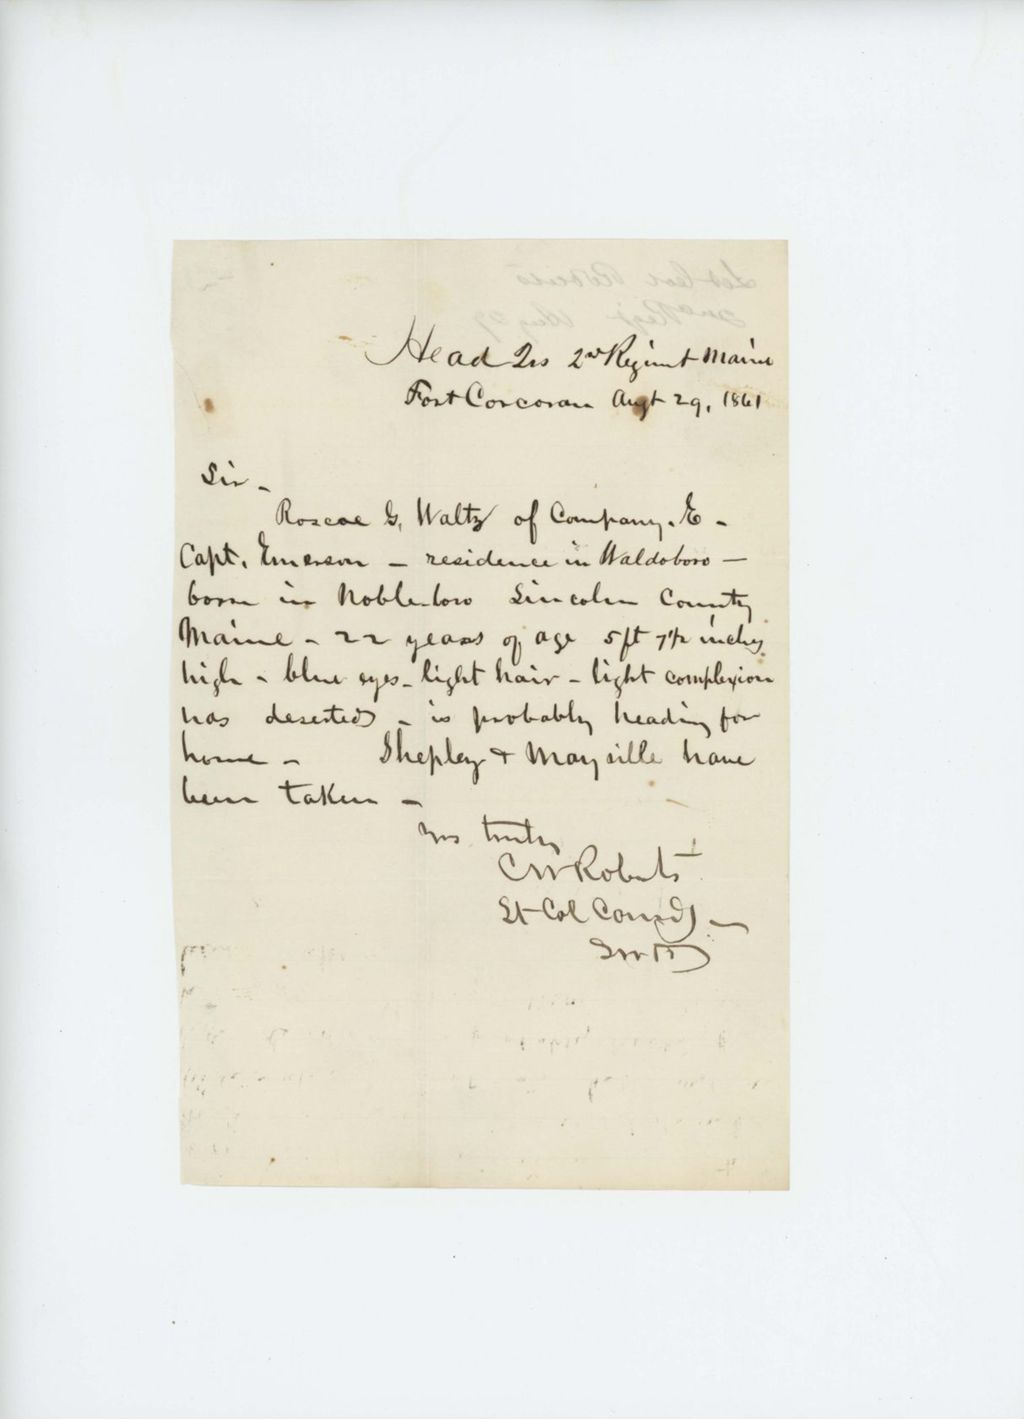 Head Qrs 2nd Regiment Maine
Fort Corcoran Augt 29, 1861
Sir -
Roscoe G. Waltz of Company. E -
Capt. Emerson - residence in Waldoboro -
born in Nobleboro Lincoln County
Maine - 22 years of age 5ft 7½ inches
high - blue eyes - light hair - light complexion
has deserted - is probably heading for
home - Shepley + Mayville have
been taken -
Yrs truly
CW Roberts
Lt Col Comd